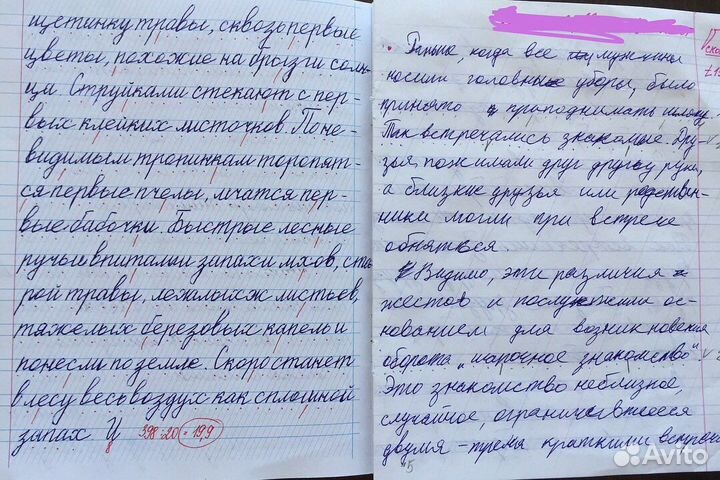 щетинку травы, сквозь первые
цветы, похожие на брызги солн-
ца. Струйками стекают с пер-
вых клейких листочков. По не-
видимым тропинкам торопят-
ся первые пчелы, мчатся пер-
вые бабочки. Быстрые лесные
ручьи впитали запахи мхов, ста
рой травы, лежалых листьев,
тяжелых березовых капель и
понесли по земле. Скоро станет
в лесу весь воздух как сплошной
запах
398:20=199
Раньше, когда все мужчины
носили головные уборы, было
принято приподнимать шляпу.
Так встречались знакомые. Дру-
зья пожимали друг другу руки,
а близкие друзья или родствен-
ники могли при встрече
обняться.
Видимо, эти различия
жестов и послужили ос-
нованием для возникновения
оборота "шапочное знакомство".
Это знакомство неблизкое,
случайное, ограничившееся
двумя-тремя краткими встреча
Avito